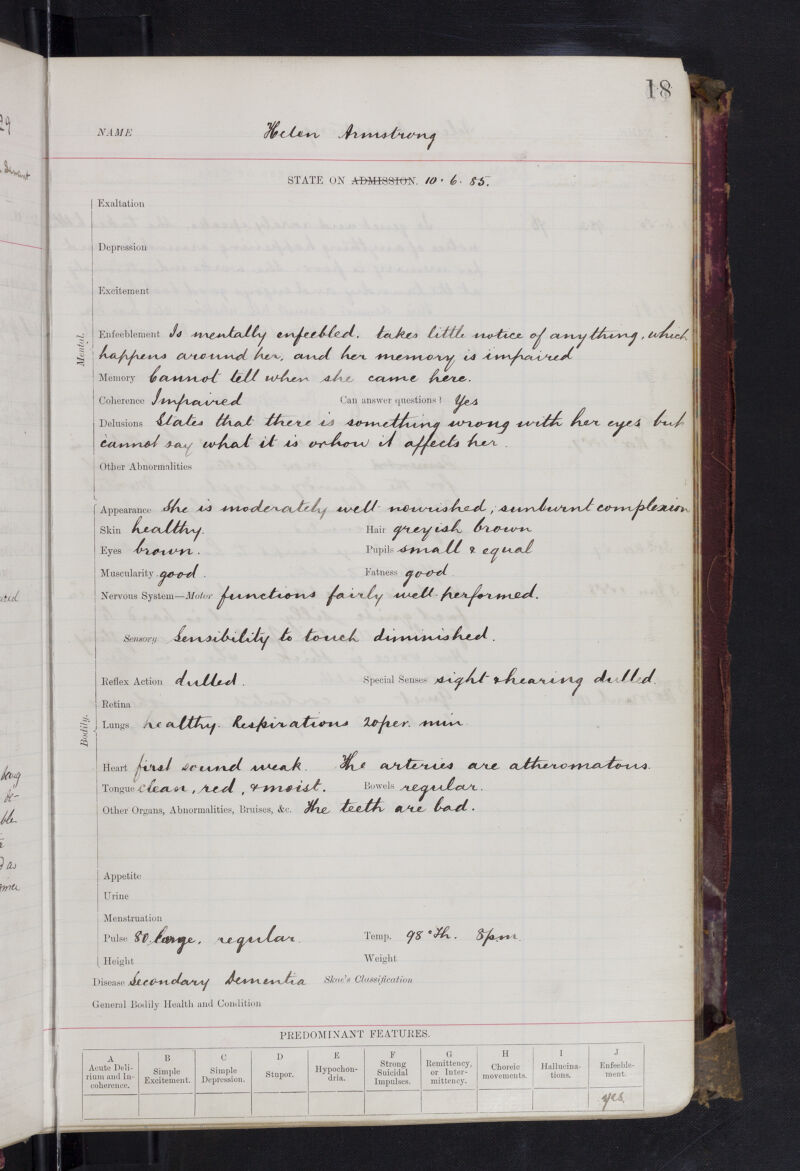 18
NAME Helen Armstrong
STATE ON ADMISSION. 10 · 6 · 85.
Exaltation
Depression
Excitement
Mental.
Enfeeblement Is mentally enfeebled. takes little notice of anything, which
happens around her, and her memory is impaired
Memory Cannot tell when she came here.
Coherence Impaired Can answer questions? Yes
Delusions States that there is something wrong with her eyes but
cannot say what it is or how it affects her.
Other Abnormalities
Bodily.
Appearance She is moderately well nourished, sunburnt complexion
Skin healthy. Hair greyish brown
Eyes brown. Pupils small & equal
Muscularity good. Fatness good
Nervous System—Motor functions fairly well performed.
Sensory Sensibility to touch diminished.
Reflex Action dulled. Special Senses sight & hearing dulled.
Retina
Lungs healthy. Respirations 20 per. min
Heart first sound weak. The arteries are atheromatous.
Tongue clean, red, & moist. Bowels regular.
Other Organs, Abnormalities, Bruises, &c. The teeth are bad.
Appetite
Urine
Menstruation
Pulse 80, large, regular. Temp. 98° Fh. 8pm.
Height Weight
Disease Secondary Dementia Skae's Classification
General Bodily Health and Condition
PREDOMINANT FEATURES.
A B C D E F G H I J
Acute Deli-
rium and In-
coherence.
Simple
Excitement.
Simple
Depression.
Stupor.
Hypochon-
dria.
Strong
Suicidal
Impulses.
Remittency,
or Inter-
mittency.
Choreic
movements.
Hallucina-
tions.
Enfeeble-
ment.
yes.